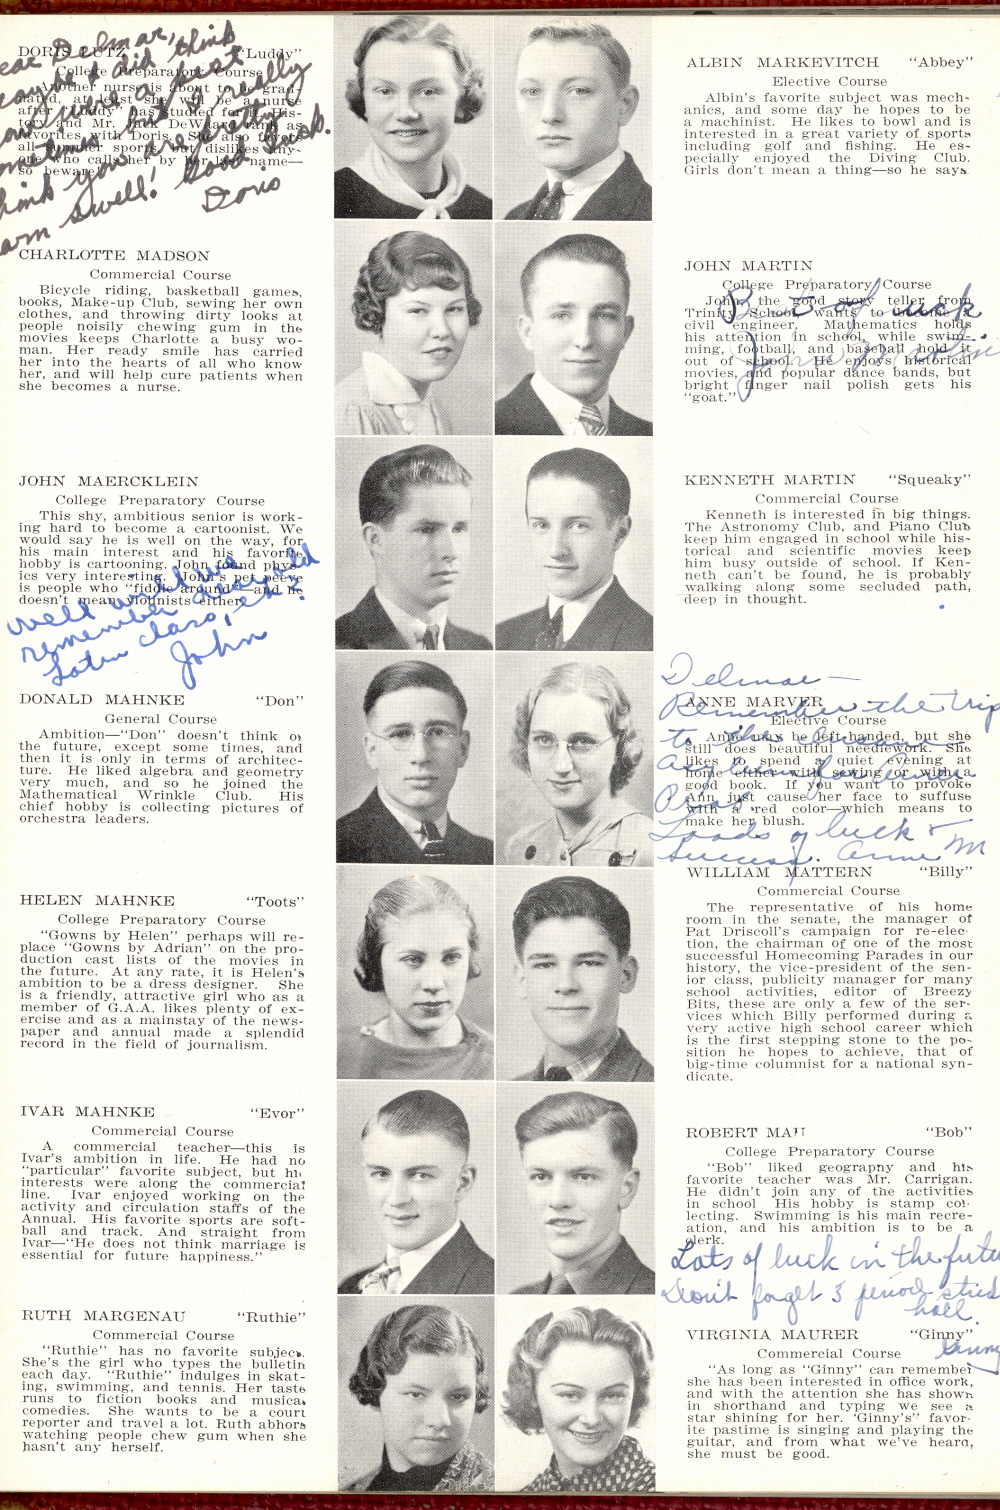 DORIS LUTZ "Luddy"
College Preparatory Course
Another nurse is about to be grad-
uated, at least she will be a nurse
after "Luddy" has studied for it. His-
tory and Mr. Jack DeWaard rank as
favorites with Doris. She also favors
all summer sports, but dislikes any-
one who calls her by her last name—
so beware
Delmar,
did think
sometimes but I really
think you
swell! Good luck.
Doris
CHARLOTTE MADSON
Commercial Course
Bicycle riding, basketball games,
books, Make-up Club, sewing her own
clothes, and throwing dirty looks at
people noisily chewing gum in the
movies keeps Charlotte a busy wo-
man. Her ready smile has carried
her into the hearts of all who know
her, and will help cure patients when
she becomes a nurse.
JOHN MAERCKLEIN
College Preparatory Course
This shy, ambitious senior is work-
ing hard to become a cartoonist. We
would say he is well on the way, for
his main interest and his favorite
hobby is cartooning. John found phys-
ics very interesting. John's pet peeve
is people who "fiddle around"—and he
doesn't mean violinists either.
well
remember
Latin class, eh?
John
DONALD MAHNKE "Don"
General Course
Ambition—"Don" doesn't think of
the future, except some times, and
then it is only in terms of architec-
ture. He liked algebra and geometry
very much, and so he joined the
Mathematical Wrinkle Club. His
chief hobby is collecting pictures of
orchestra leaders.
HELEN MAHNKE "Toots"
College Preparatory Course
"Gowns by Helen" perhaps will re-
place "Gowns by Adrian" on the pro-
duction cast lists of the movies in
the future. At any rate, it is Helen's
ambition to be a dress designer. She
is a friendly, attractive girl who as a
member of G.A.A. likes plenty of ex-
ercise and as a mainstay of the news-
paper and annual made a splendid
record in the field of journalism.
IVAR MAHNKE "Evor"
Commercial Course
A commercial teacher—this is
Ivar's ambition in life. He had no
"particular" favorite subject, but his
interests were along the commercial
line. Ivar enjoyed working on the
activity and circulation staffs of the
Annual. His favorite sports are soft-
ball and track. And straight from
Ivar—"He does not think marriage is
essential for future happiness."
RUTH MARGENAU "Ruthie"
Commercial Course
"Ruthie" has no favorite subject.
She's the girl who types the bulletin
each day. "Ruthie" indulges in skat-
ing, swimming, and tennis. Her taste
runs to fiction books and musical
comedies. She wants to be a court
reporter and travel a lot. Ruth abhors
watching people chew gum when she
hasn't any herself.
ALBIN MARKEVITCH "Abbey"
Elective Course
Albin's favorite subject was mech-
anics, and some day he hopes to be
a machinist. He likes to bowl and is
interested in a great variety of sports
including golf and fishing. He es-
pecially enjoyed the Diving Club.
Girls don't mean a thing—so he says.
JOHN MARTIN
College Preparatory Course
John, the good story teller from
Trinity School, wants to become a
civil engineer. Mathematics holds
his attention in school, while swim-
ming, football, and baseball hold it
out of school. He enjoys historical
movies, and popular dance bands, but
bright finger nail polish gets his
"goat."
Best of luck
John Martin
KENNETH MARTIN "Squeaky"
Commercial Course
Kenneth is interested in big things.
The Astronomy Club, and Piano Club
keep him engaged in school while his-
torical and scientific movies keep
him busy outside of school. If Ken-
neth can't be found, he is probably
walking along some secluded path,
deep in thought.
ANNE MARVER
Elective Course
Anne may be left-handed, but she
still does beautiful needlework. She
likes to spend a quiet evening at
home either with sewing or with a
good book. If you want to provoke
Ann just cause her face to suffuse
with a red color—which means to
make her blush.
Delmar—
Remember the trip
to the
Loads of luck &
success. Anne M
WILLIAM MATTERN "Billy"
Commercial Course
The representative of his home
room in the senate, the manager of
Pat Driscoll's campaign for re-elec-
tion, the chairman of one of the most
successful Homecoming Parades in our
history, the vice-president of the sen-
ior class, publicity manager for many
school activities, editor of Breezy
Bits, these are only a few of the ser-
vices which Billy performed during a
very active high school career which
is the first stepping stone to the po-
sition he hopes to achieve, that of
big-time columnist for a national syn-
dicate.
ROBERT MAU "Bob"
College Preparatory Course
"Bob" liked geography and his
favorite teacher was Mr. Carrigan.
He didn't join any of the activities
in school His hobby is stamp col-
lecting. Swimming is his main recre-
ation, and his ambition is to be a
clerk.
Lots of luck in the futu
Don't forget 3 period stud
hall.
Ginny
VIRGINIA MAURER "Ginny"
Commercial Course
"As long as "Ginny" can remember
she has been interested in office work,
and with the attention she has shown
in shorthand and typing we see a
star shining for her. 'Ginny's" favor-
ite pastime is singing and playing the
guitar, and from what we've heard,
she must be good.